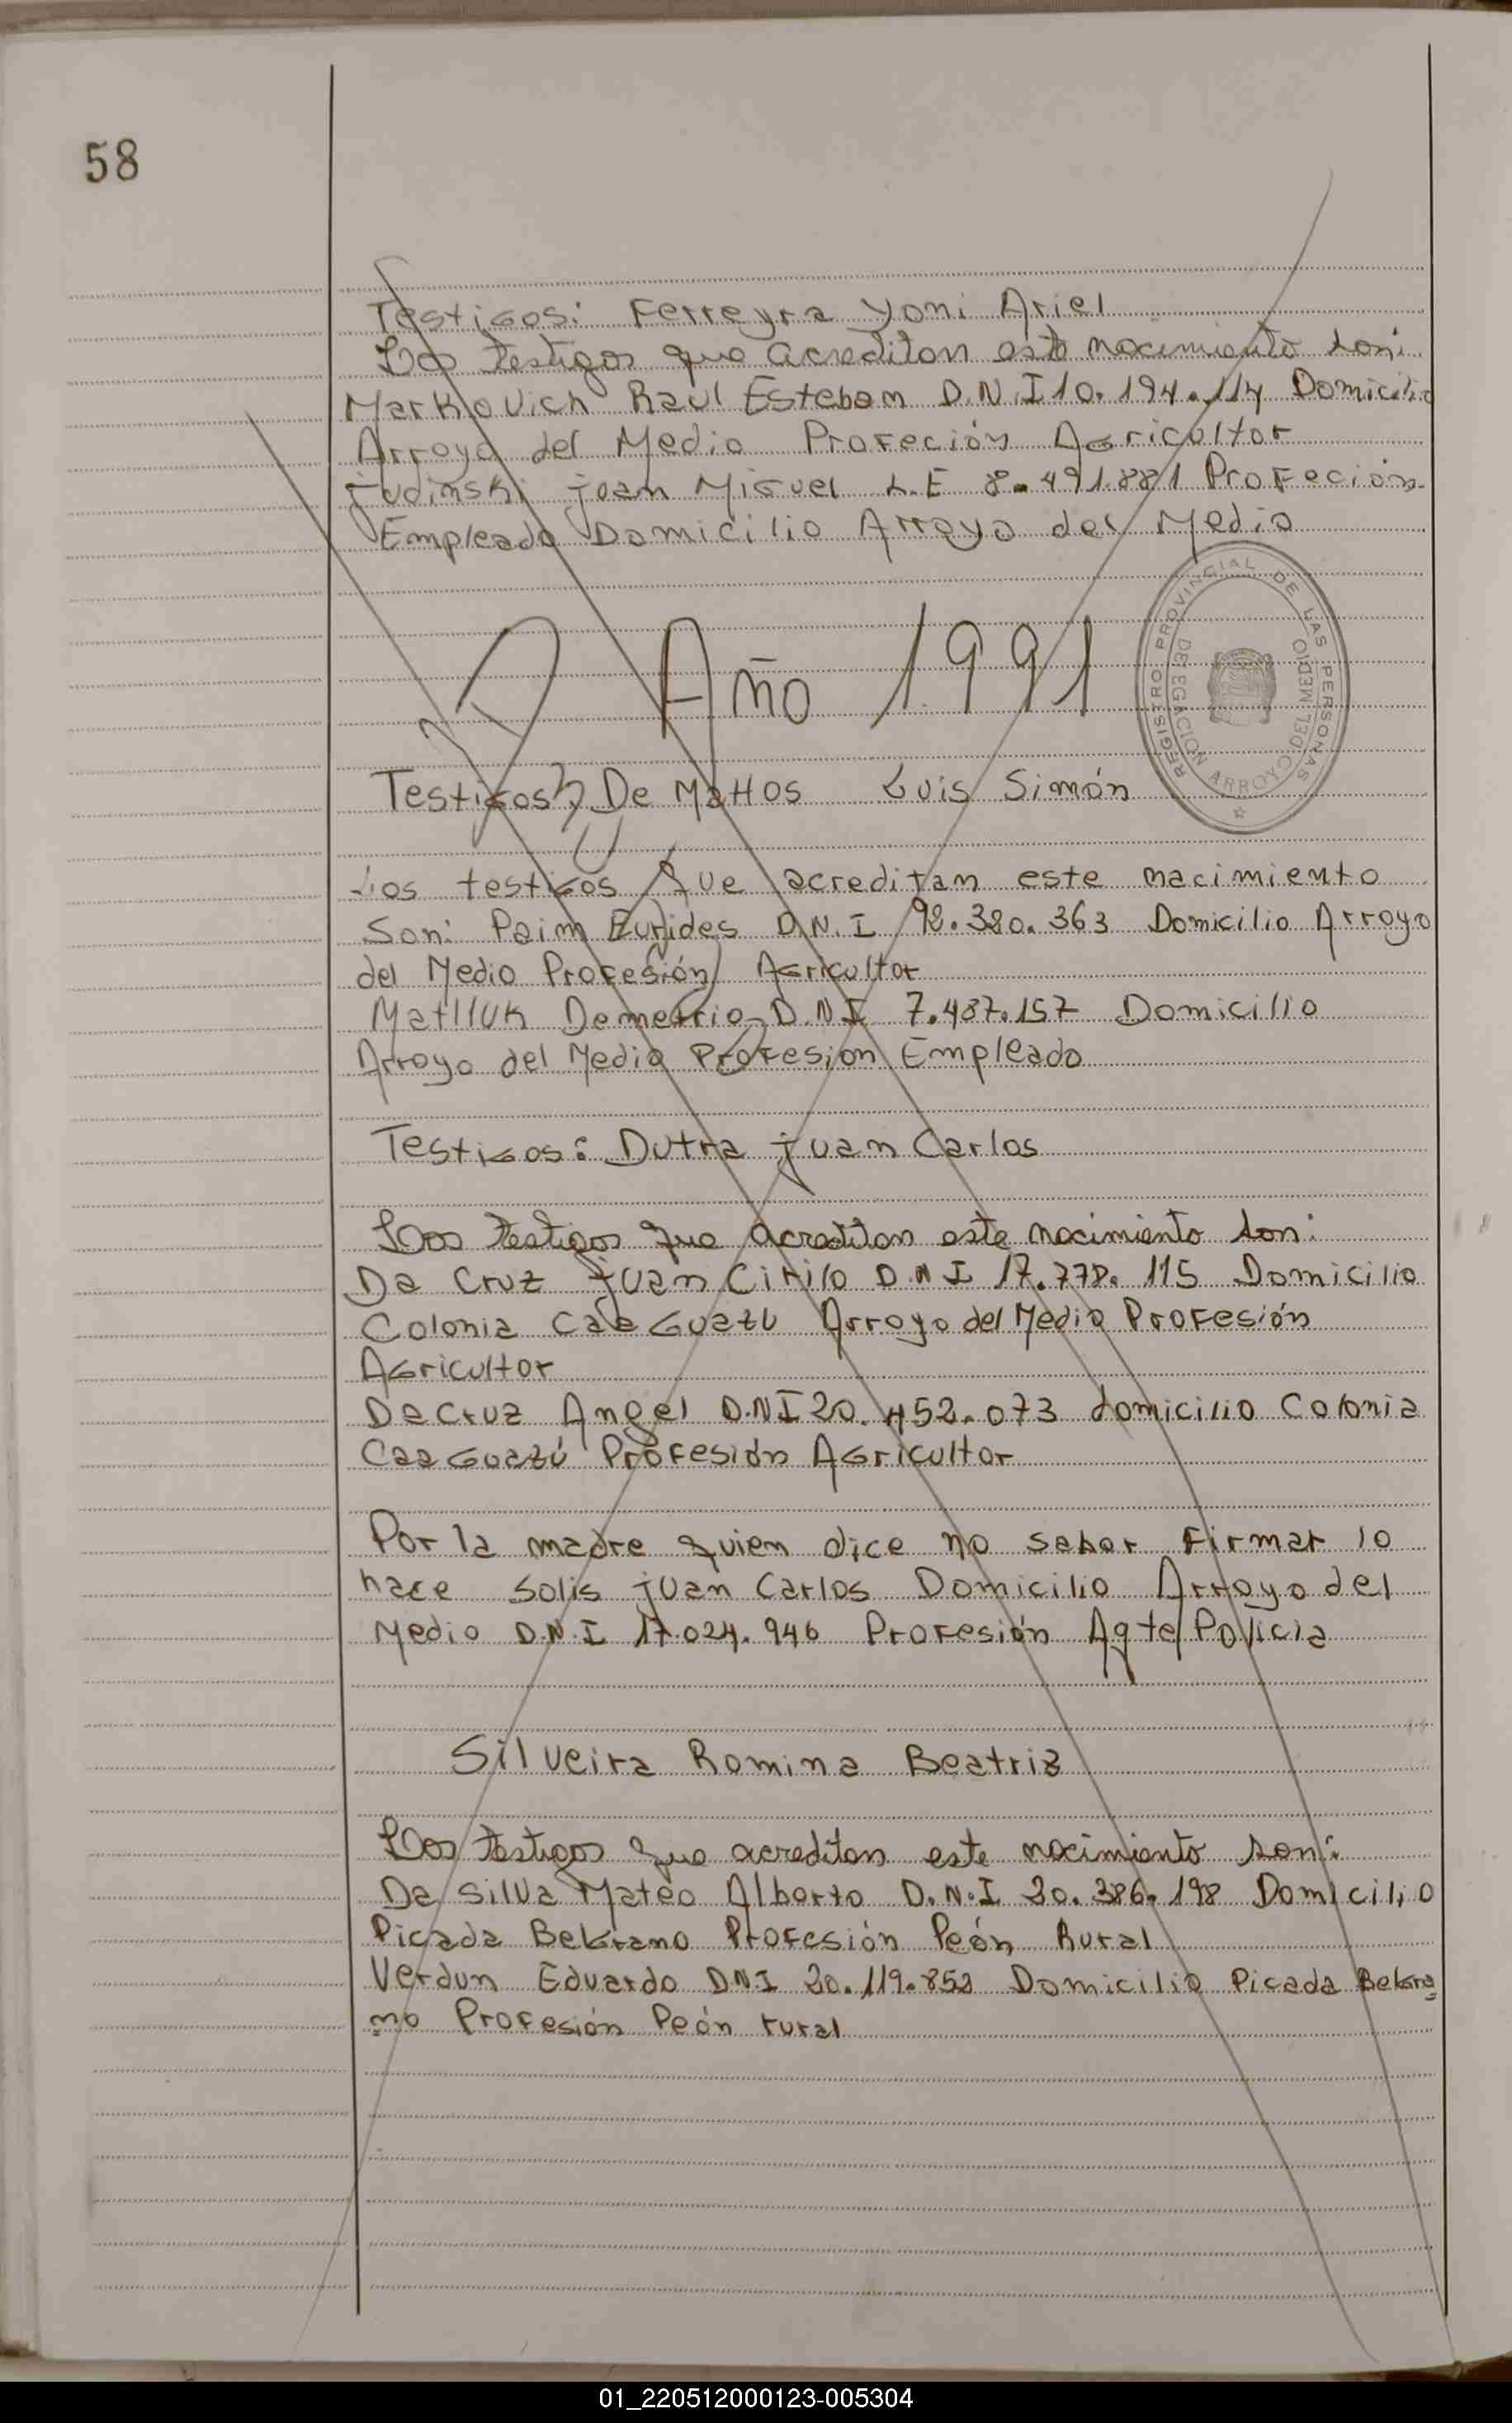 58
Testigos: Ferreyra Yoni Ariel
Los testigos que acreditan este nacimiento son:
Markovich Raul Esteban D.N.I 10.194.114 Domicilio
Arroyo del Medio Profeción Agricultor
Judinski Juan Miguel L.E 8.491.881 Profeción
Empleado Domicilio Arroyo del Medio
Año 1991
REGISTRO PROVINCIAL DE LAS PERSONAS
DELEGACION ARROYO DEL MEDIO
Testigos De Mattos Luis Simón
Los testigos que acreditan este nacimiento
Son: Paim Eurides D.N.I 92.320.363 Domicilio Arroyo
del Medio Profesión Agricultor
Matlluk Demetrio D.N.I 7.487.157 Domicilio
Arroyo del Medio Profesion Empleado
Testigos: Dutra Juan Carlos
Los testigos que acreditan este nacimiento son:
Da Cruz Juan Cirilo D.N.I 17.778.115 Domicilio
Colonia Caaguazu Arroyo del Medio Profesión
Agricultor
Da Cruz Angel D.N.I 20.452.073 domicilio Colonia
Caaguazú Profesión Agricultor
Por la madre quien dice no saber Firmar lo
hace Solis Juan Carlos Domicilio Arroyo del
Medio D.N.I 17.024.946 Profesión Agte Policia
Silveira Romina Beatriz
Los testigos que acreditan este nacimiento son:
Da Silva Mateo Alberto D.N.I 20.386.198 Domicilio
Picada Belgrano Profesión Peón Rural
Verdun Eduardo D.N.I 20.119.852 Domicilio Picada Belgra
no Profesión Peón rural
01_220512000123-005304